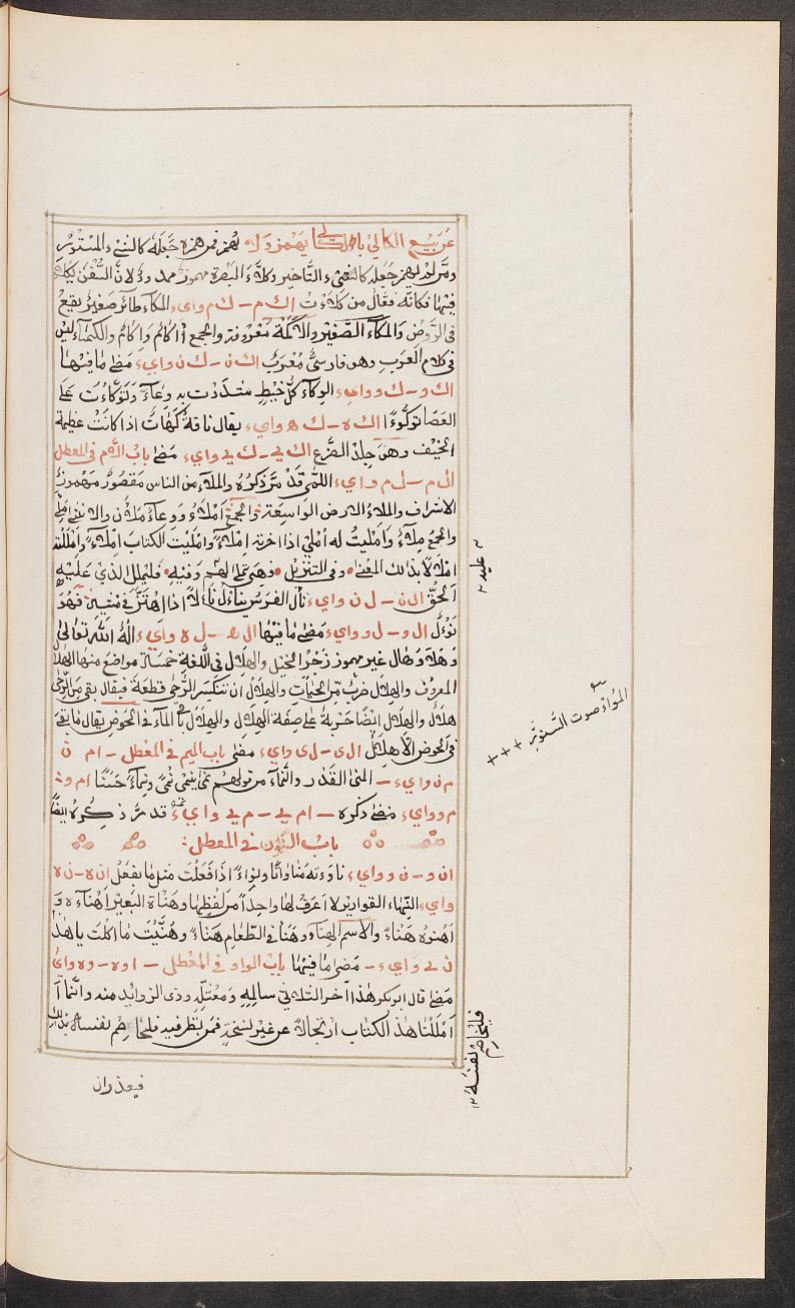 عن بيع الكالئ بالكالئ يهمز ولا يهمز فمن همزه جعله كالنسء والمستوتر
ومن لم يهمز جعله كالنعى والتأخير وكلاء البصرة مهموز ممدود لان السفن تكلاء
فيها فكانه فعال من كلاءت اك م - ك م واىء المكاء طائر صغير يقع
فى الروض والمكاء الصفير والاكمة معروفة والجمع اكام واكام والكيمياء ليس
فى كلام العرب وهو فارسى معرب اك ن - ك ن واىء مضى ما فيها
اك و - ك و واىء الوكاء كل خيط شددت به وعاء وتوكاءت على
العصا توكوءا اك ه - ك ه واىء يقال ناقة كهاة اذا كانت عظيمة
الخيف وهو جلد الضرع اك ى - ك ى واىء مضى باب اللام فى المعطل
ال م - ل م واىء اللمى قد مر ذكره والملاء من الناس مقصور مهموز
الاشراف والملاء الارض الواسعة والجمع املاء ووعاء ملاءن والانثى ملئى
والجمع ملاء وامليت له املى اذا اخرته املاء وامليت الكتاب املاء وامللته
املالا بذلك المعنى وفى التنزيل فهى تملى عليهم وفيه فليملل الذى عليه
الحق ال ن - ل ن واىء نأل الفرس ينأل نألا اذا اهتز فى مشيه فهو
نوءل ال و - ل و واىء مضى ما فيها ال ه - ل ه واىء اله الله تعالى
وهلا وهال غير مهموز زجر الخيل والهلال فى اللغة خمسة مواضع منها الهلال
المعروف والهلال ضرب من الحيات والهلال ان تنكسر الرحى قطعة فيقال بقى من الرحى
هلال والهلال ايضا حربة على صفة الهلال والهلال باقى الماء فى الحوض يقال ما بقى
فى الحوض الا هلال ال ى - ل ى واىء مضى باب الميم فى المعطل - ا م ن
م ن واىء - المنى القدر والنماء من قولهم نمى ينمى نمى ونماء حسنا ا م و -
م و واىء مضى ذكره - ا م ى - م ى واىء قد مر ذكره ايضا
باب النون فى المعطل:
ا ن و - ن و واىء ناوءته مناواة ونواء اذا فعلت مثل ما يفعل ا ن ه - ن ه
واىء النهاء القوارير لا اعرف لها واحدا من لفظها وهناة البعير اهناءه و
اهنوه هناء والاسم الهناء وهناء فى الطعام هناء وهنيت ما اكلت يا هذا
ن ى واىء - مضى ما فيها باب الواو فى المعطل - ا و ه - و ه واى
مضى قال ابو بكر هذا آخر الثلاثى سالمه ومعتله وذى الزوائد منه وانما ا
املنا هذ الكتاب ارتجالا عن غير نسخة فمن نظر فيه فليخاصم نفسه بذلك
فيعذر ان
عليه
المواء صوت السنور +++
فليخاصم نفسه ١٢